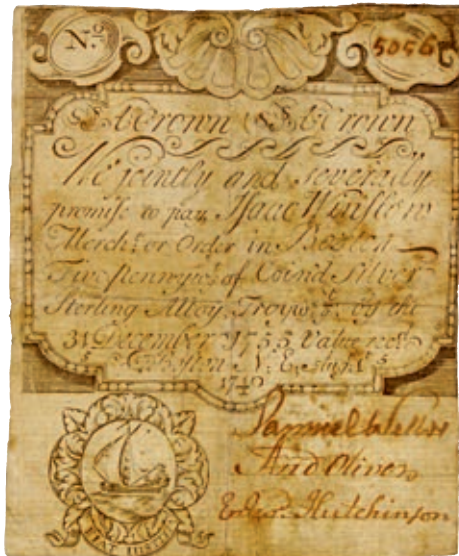 No. 5056
A Crown A Crown
We jointly and severally
promise to pay Isaac Winslow
Mercht. or Order in Boston
Five pennywts. of Coin'd Silver
Sterling Alloy Troywt. by the
31 December 1755 Value recd.
Boston N. E. Augt. 1st
1740
Samuel Welles
And Oliver
Edwd. Hutchinson
FIAT JUSTITIA